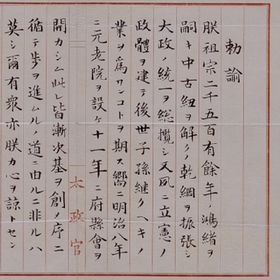 勅諭
朕祖宗二千五百有餘年ノ鴻緒ヲ
嗣キ中古紐ヲ解クノ乾綱ヲ振張シ
大政ノ統一ヲ總攬シ又夙ニ立憲ノ
政體ヲ建テ後世子孫繼クヘキノ
業ヲ為サンコトヲ期ス嚮ニ明治八年
ニ元老院ヲ設ケ十一年ニ府縣會ヲ
開カシム此レ皆漸次基ヲ創メ序ニ
循テ歩ヲ進ムルノ道ニ由ルニ非ルハ
莫シ爾有衆亦朕カ心ヲ諒トセン
太政官